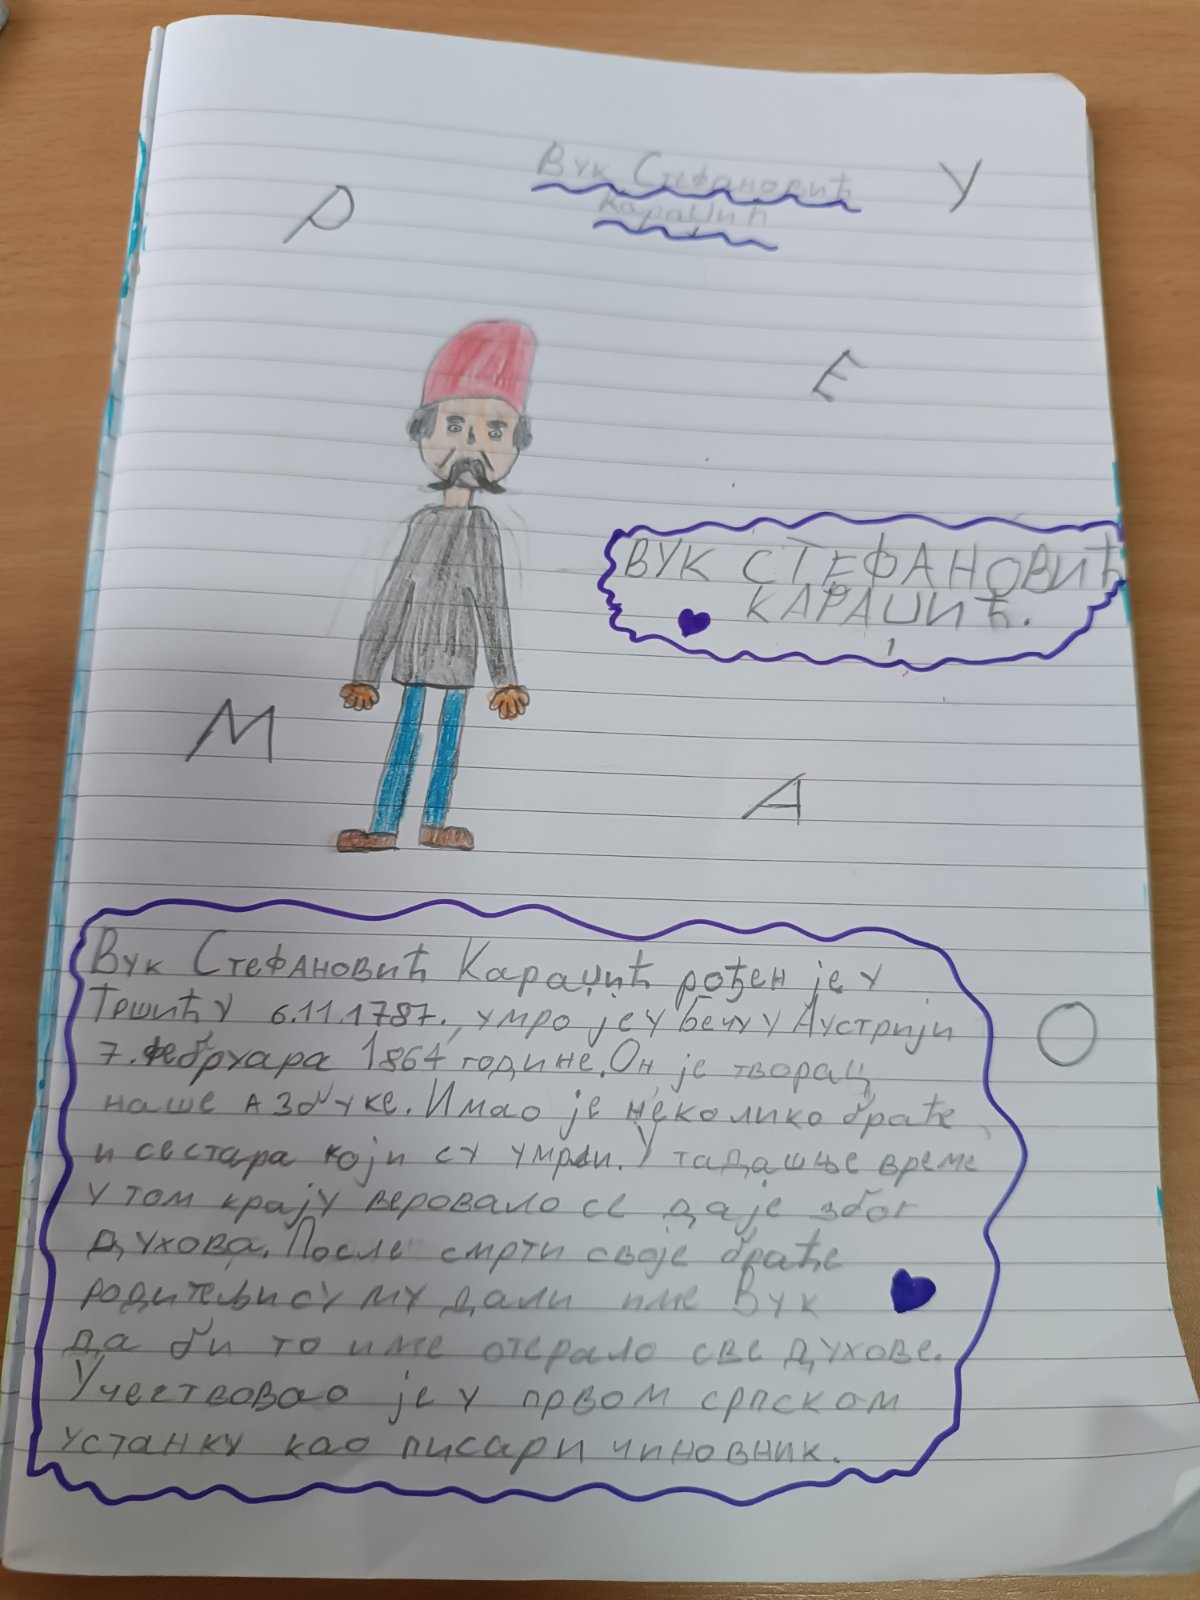 Вук Стефановић
Караџић
Р
У
Е
ВУК СТЕФАНОВИЋ
КАРАЏИЋ.
М
А
Вук Стефановић Караџић рођен је у
Тршићу 6.11.1787., умро је у Бечу у Аустрији
7. фебрхара 1864 године. Он је творац
наше азбуке. Имао је неколико браће
и сестара који су умрли. У тадашње време
у том крају веровало се да је због
духова. После смрти своје браће
родитељи су му дали име Вук
да би то име отерало све духове.
Учествовао је у првом српском
устанку као писар и чиновник.
О